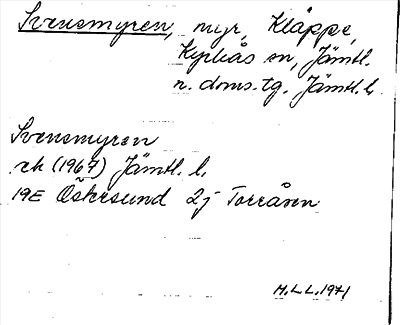 Svensmyren, myr, Kläppe,
Kyrkås sn, Jämtl.
n. doms.tg. Jämtl.l.
Svensmyren
rk (1967) Jämtl. l.
19E Östersund 2j Torråsen
M.L.L. 1971